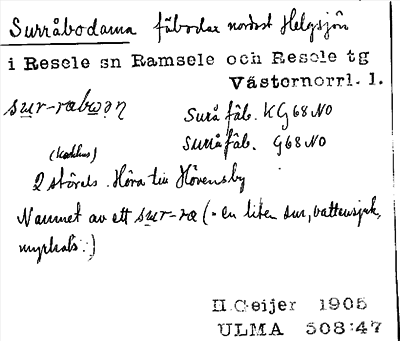 Surråbodarna fäbodar nordost Helgsjön
i Resele sn Ramsele och Resele tg
Västernorrl. l.
sur-rabωǝn
Surå fäb. KG68NO
Surrå fäb. G68NO
2 störels. Höra till Hövensby
Namnet av ett sur-ra (= en liten sur, vattensjuk,
myrhals.)
H.Geijer 1905
ULMA 508:47